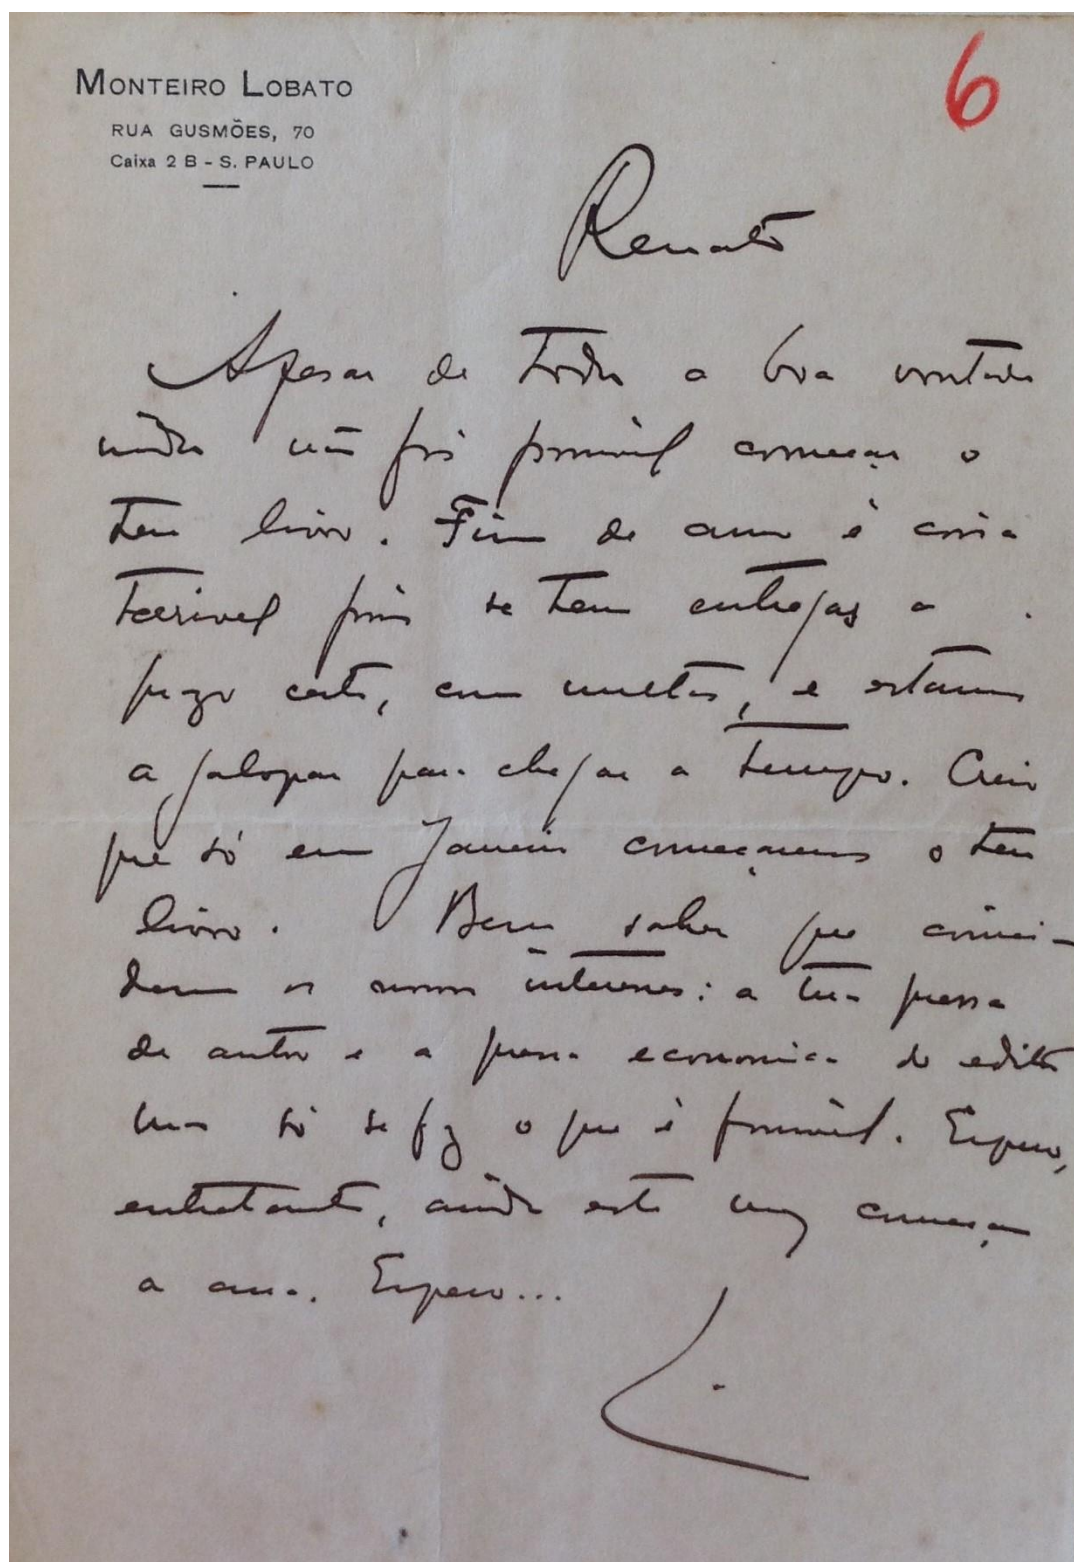 MONTEIRO LOBATO
RUA GUSMÕES, 70
Caixa 2 B - S. PAULO
6
Renato
Apesar de toda a boa vontade
minha não foi possivel começar o
teu livro. Fim de anno é coisa
terrivel pois se tem entregas a
prazo certo, com multas, e estamos
a galopar para chegar a tempo. Creio
que só em Janeiro começaremos o teu
livro. Bem sabes que coinci-
dem os nossos interesses: a tua pressa
de autor e a pressa economica do editor
mas só se faz o que é possivel. Espero,
entretanto, ainda este mez começar
a Espero...
L.